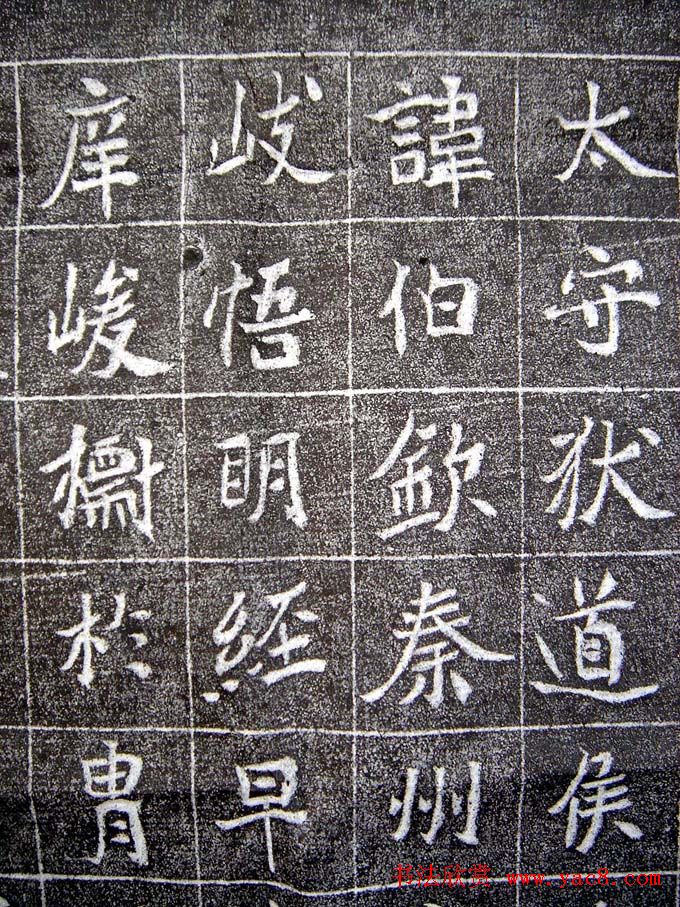 太守狄道侯
諱伯欽秦州
岐悟眀經早
庠峻於胄
书法欣赏 www.yac8.com